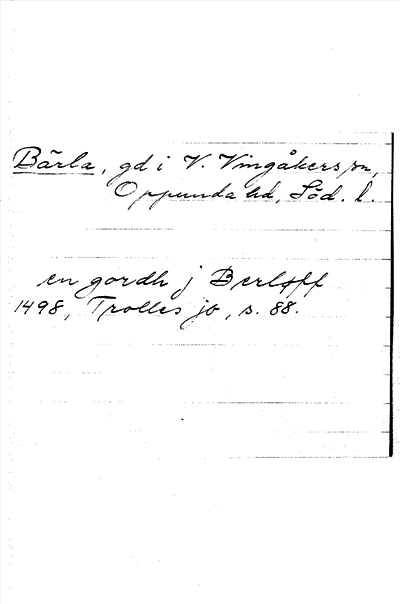 Bärla, gd i V. Vingåkers sn,
Oppunda hd, Söd. l.
en gordh j Berløff
1498, Trolles jb, s. 88.